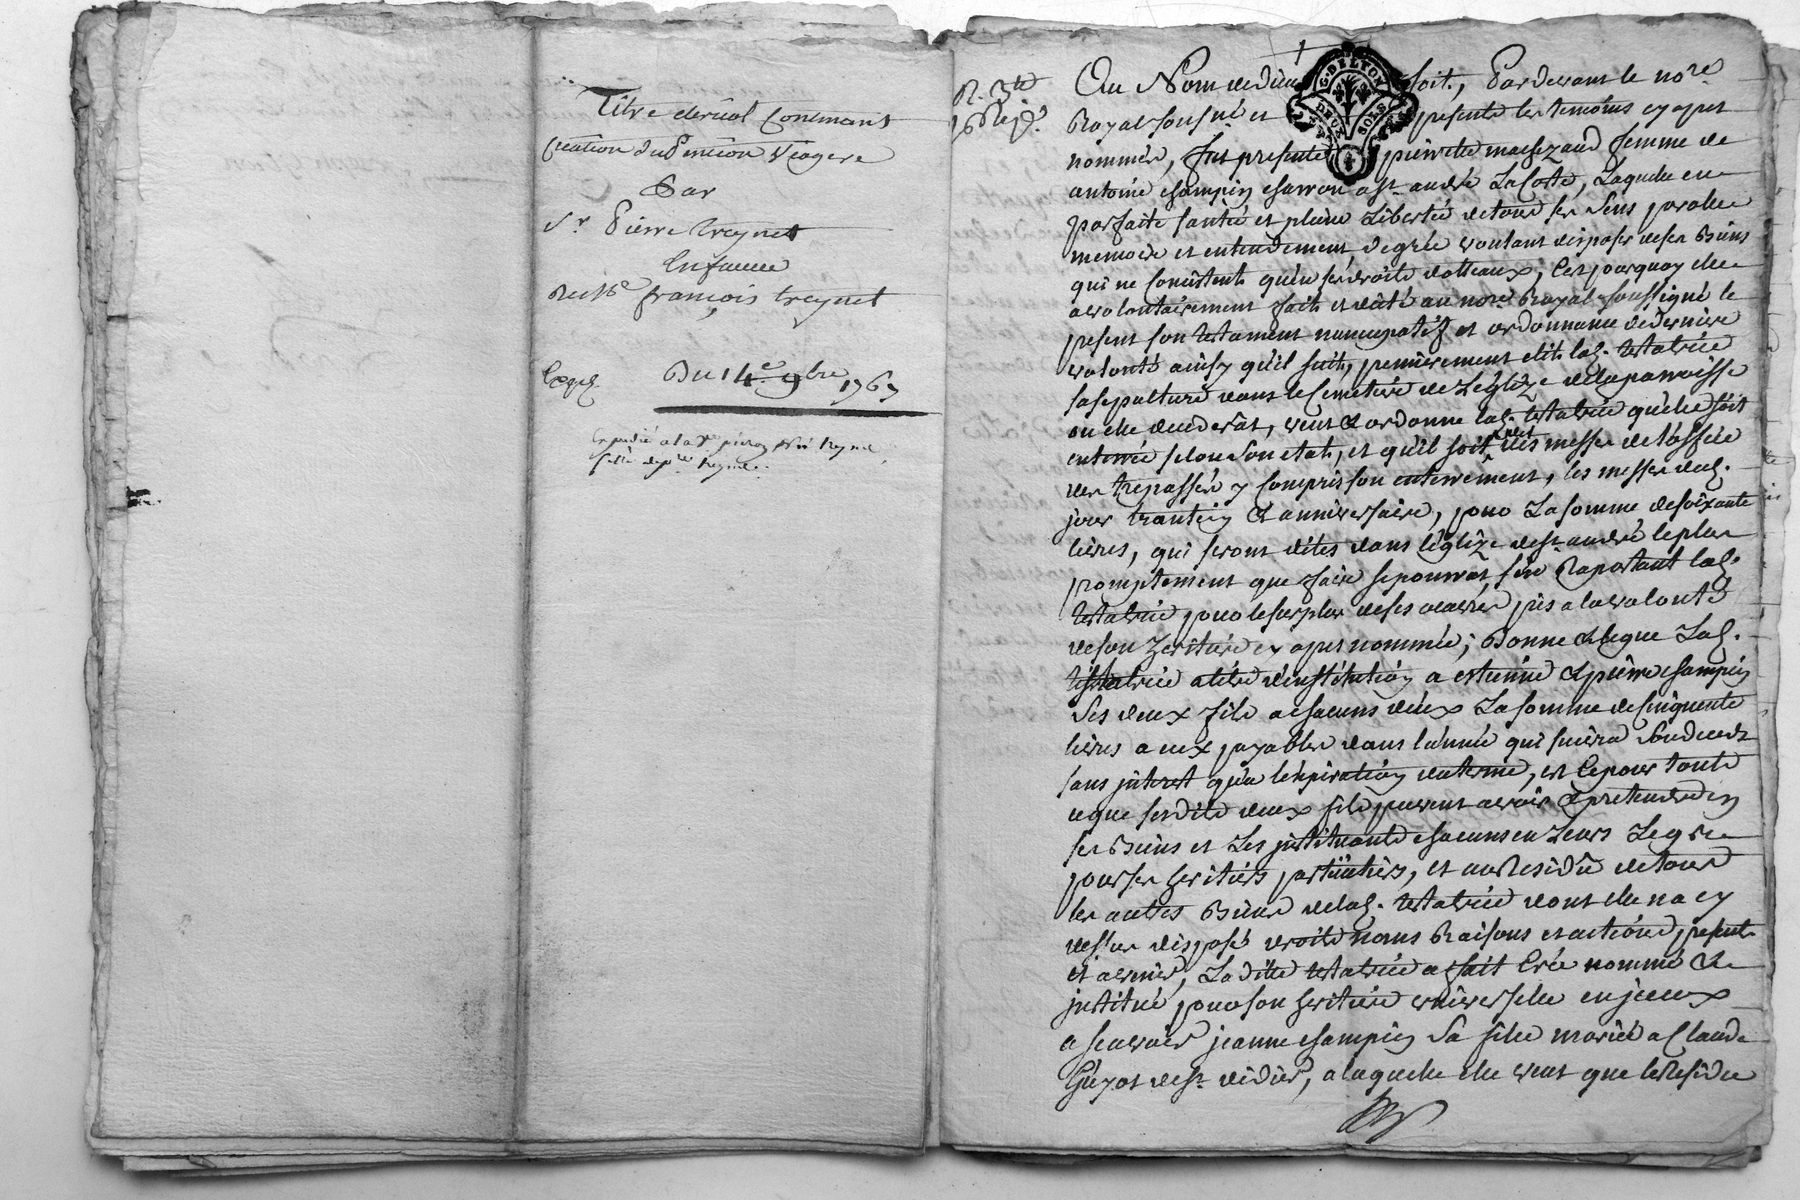 Titre clerical Contenant
Creation de Pension Viagere
Par
Sr Pierre treynet
En faveur
De Me francois treynet
Exp.
Du 14e 9bre 1767
Expedié a la
fille
R. 3tt
Au Nom de dieu soit, Pardevant le nore
G. DE LYON
DEUX SOLS
Royal soussné et presents les temoins cy apres
nommés, fut presente pierrette femme de
antoine champin charron a st andré La Cotte, Laquelle en
parfaite santé et pleine Liberté de tous ses sens parolle
memoire et entendement, de gré voulant disposer de ses Biens
qui ne consistent qu'en ses droits dotteaux, C'est pourquoy elle
a volontairement fait et dicté au nore Royal soussigné le
present son testament nuncupatif et ordonnance de derniere
volonté ainsy qu'il suit, premierement elit lad. testatrice
sa sepulture dans le Cemetiere de L'églize de la parroisse
ou elle decederat, veut & ordonne lad. testatrice qu'elle soit
enterrée selon son etat, et qu'il soit dit des messes de l'office
des trepassés y compris son enterrement, les messes dud.
jour trantein & anniversaire, pour La somme de soixante
livres, qui seront dites dans l'églize de st andré le plus
promptement que faire se pourrat, s'en Raportant lad.
testatrice pour le surplus de ses œuvres pies a la volonté
de son heritiere cy apres nommée; Donne & legue Lad.
testatrice a titre d'institution a estienne & pierre champin
Ses deux fils a chacuns d'eux La somme de cinquante
livres a eux payables dans l'année qui suivra son deces
sans interet qu'a l'expiration du terme, et ce pour tout
ce que sesdits deux fils peuvent avoir & pretendre en
ses Biens et Les instituants chacuns en Leurs Legs
pour ses heritiers particuliers, et au Residû de tous
les autres Biens de lad. testatrice dont elle n'a cy
dessus disposé droits noms Raisons et actions presents
et avenir, Laditte testatrice a fait Créé nommé &
institué pour son heritiere universelle en jceux
a scavoir jeanne champin Sa fille mariée a Claude
Guyot de st didier, a laquelle elle veut que le Residu